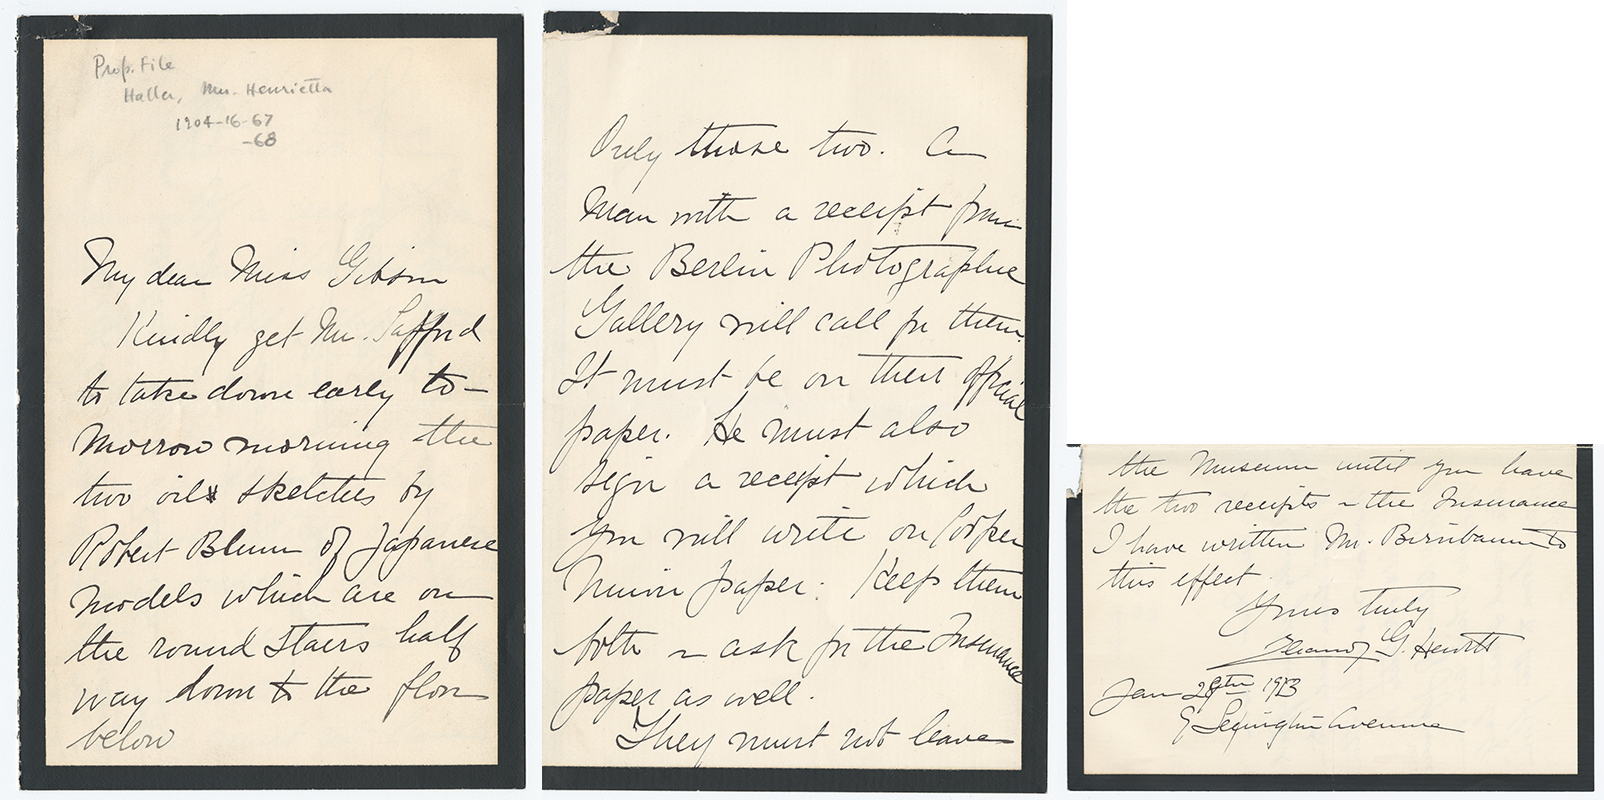 Prop. File
Haller, Mrs. Henrietta
1904-16-67
-68
My dear Miss Gibson
Kindly get Mr. Safford
to take down early to-
morrow morning the
two oil sketches by
Robert Blum of Japanese
models which are on
the round Stairs half
way down to the floor
below
Only those two. A
man with a receipt from
the Berlin Photographic
Gallery will call for them.
It must be on their official
paper. He must also
sign a receipt which
you will write on Cooper
Union paper. Keep them
both & ask for the Insurance
paper as well.
They must not leave
the Museum until you have
the two receipts & the Insurance
I have written Mr. Birnbaum to
this effect.
Yours truly
Eleanor G. Hewitt
Jan 28th 1913
9 Lexington Avenue